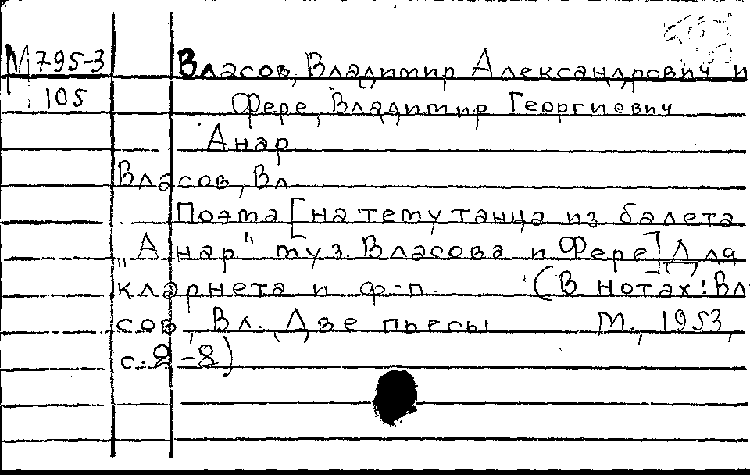 М795-3 Власов, Владимир Александрович и
105 Фере, Владимир Георгиевич
Анар
Власов, Вл
Поэма [на тему танца из балета
„Анар" муз. Власова и Фере] Для
кларнета и ф-п. (В нотах: Вла
сов, Вл. Две пьесы М., 1953,
с. 2-8)